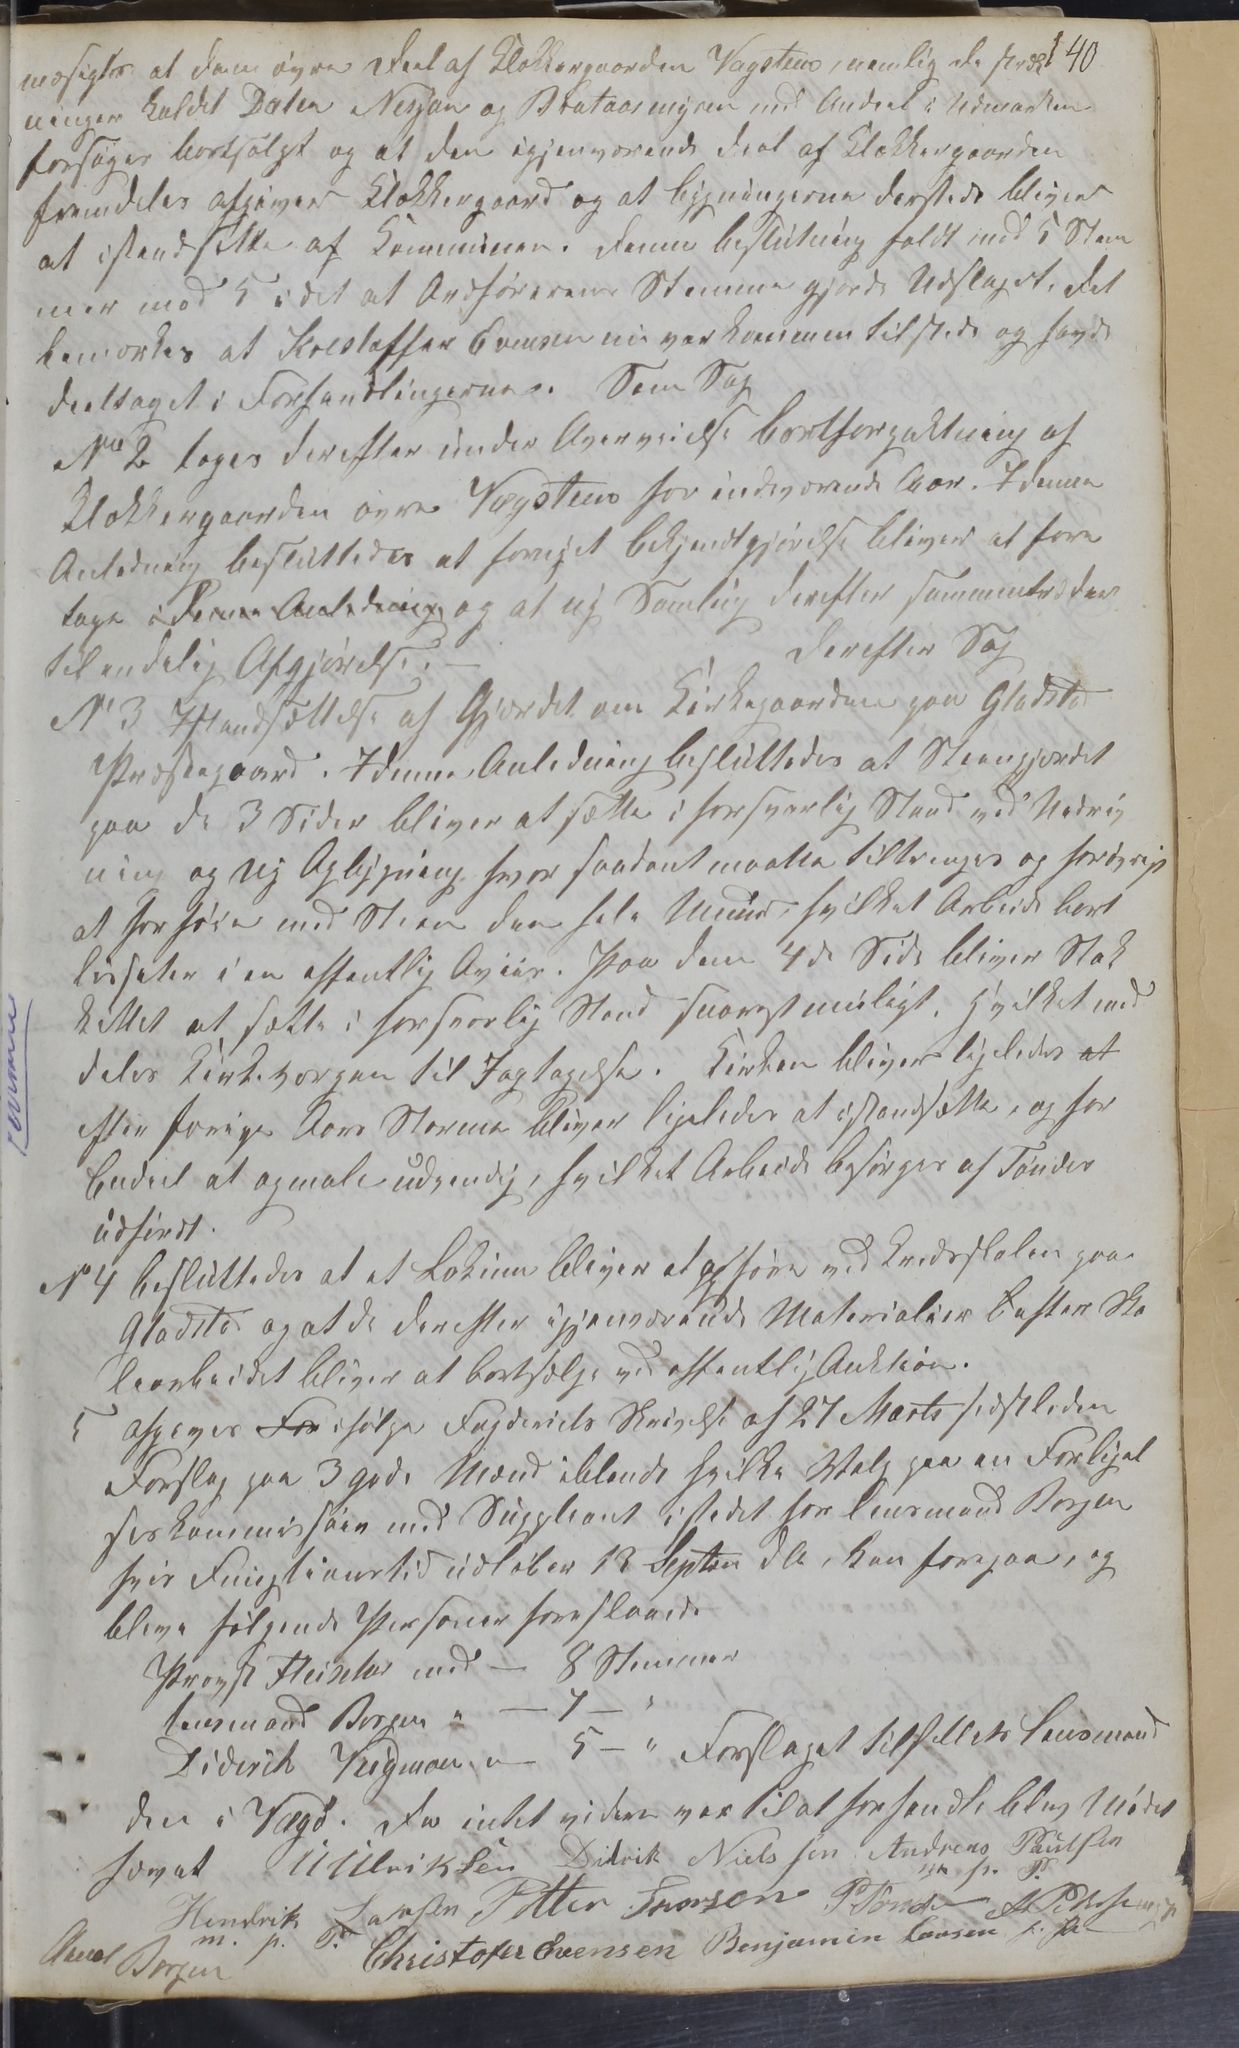 40
at den øvre Deel af Klokkergaarden Vægsteno, nemlig de
kaldet Dalen Nesjan og Brataasmyren med Andeel i Udmarken
forsøges bortsolgt og at den igjenværende Deel af Klokkergaarden
fremdeles afgiver Klokkergaard og at bygningerne dersteds bliver
at istandsætte af Communen. Denne beslutning faldt med 5 Stem
mer mod 5 idet at Ordførerens Stemme gjorde Udslaget. Det
bemærkes at Kristoffer Evensen nu var kommen tilstede og havde
deeltaget i Forhandlingerne. Som Sag
No 2 toges derefter under Overveielse bortforpaktning af
Klokkergaarden øvre Vægsteno for indeværende Aar. I denne
Anledning besluttedes at foreget bekjendtgjørelse bliver at fore
tage i denne Anledning og at ny Samling derefter sammentræder
til endelig Afgjørelse. — Derefter Sag
No 3 Istandsættelse af Gjærdet om Kirkegaarden paa Gladstad
Præstegaard. I denne Anledning besluttedes at Steengjerdet
paa de 3 Sider bliver at sætte i forsvarlig Stand ved Nedriv
ning og ny Opbygning hvor saadant maatte tiltrænges og forøvrigt
at forhøie med Steen den hele Muur, hvilket Arbeide bort
lisiteres i en offentlig Auion. Paa den 4de Side bliver Stak
kittet at sætte i forsvarlig Stand snarest muligt, hvilket med
deles Kirkevergen til Iagtagelse. Kirken bliver ligeledes at
efter forrige Aars Storme bliver ligeledes at istandsætte, og for
endeel at opmale udvendig, hvilket Arbeide besørges af Tønder
udført.
No 4 besluttedes at et Lokum bliver at opføre ved Kredsskolen paa
Gladstad og at de derefter igjenværende Materialier efter Sko
learbeidet bliver at bortsælge ved offentlig Auktion.
5 afgaves For ifølge Fogderiets Skrivelse af 27 Marts sidstleden
Forslag paa 3 gode Mænd iblandt hvilke Valg paa en Forligel
seskommissær med Suppleant istedet for Lensmand Borgen
hvis Funktionstid udløber 13 Septbr d A, kan foregaa, og
bleve følgende Personer foreslaaede
Provst Heixler med — 8 Stemmer
Lensmand Borgen " — 7 — "
Diderik Vegmoen " — 5 — " Forslaget tilstilles Lensmand
den i Vægø. Da intet videre var til at forhandle blev Mødet
hævet Ulriksen Didrik Nielssen Andreas Paulsen
m p. P.
Hendrik Larsen Petter Ivarsen P Tønder A Pedersen
m. p. P.
Borgen Christofer Evensen Benjamin Larsen